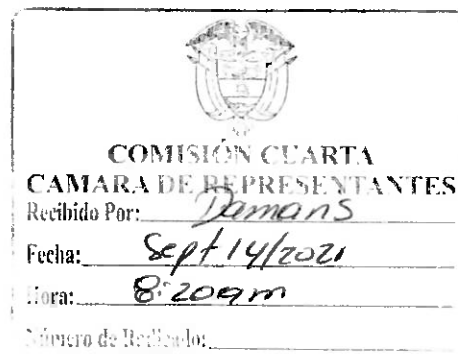 COMISIÓN CUARTA
CAMARA DE REPRESENTANTES
Recibido Por: Damaris
Fecha: Sept 14/2021
Hora: 8:20am
Número de Radicado: